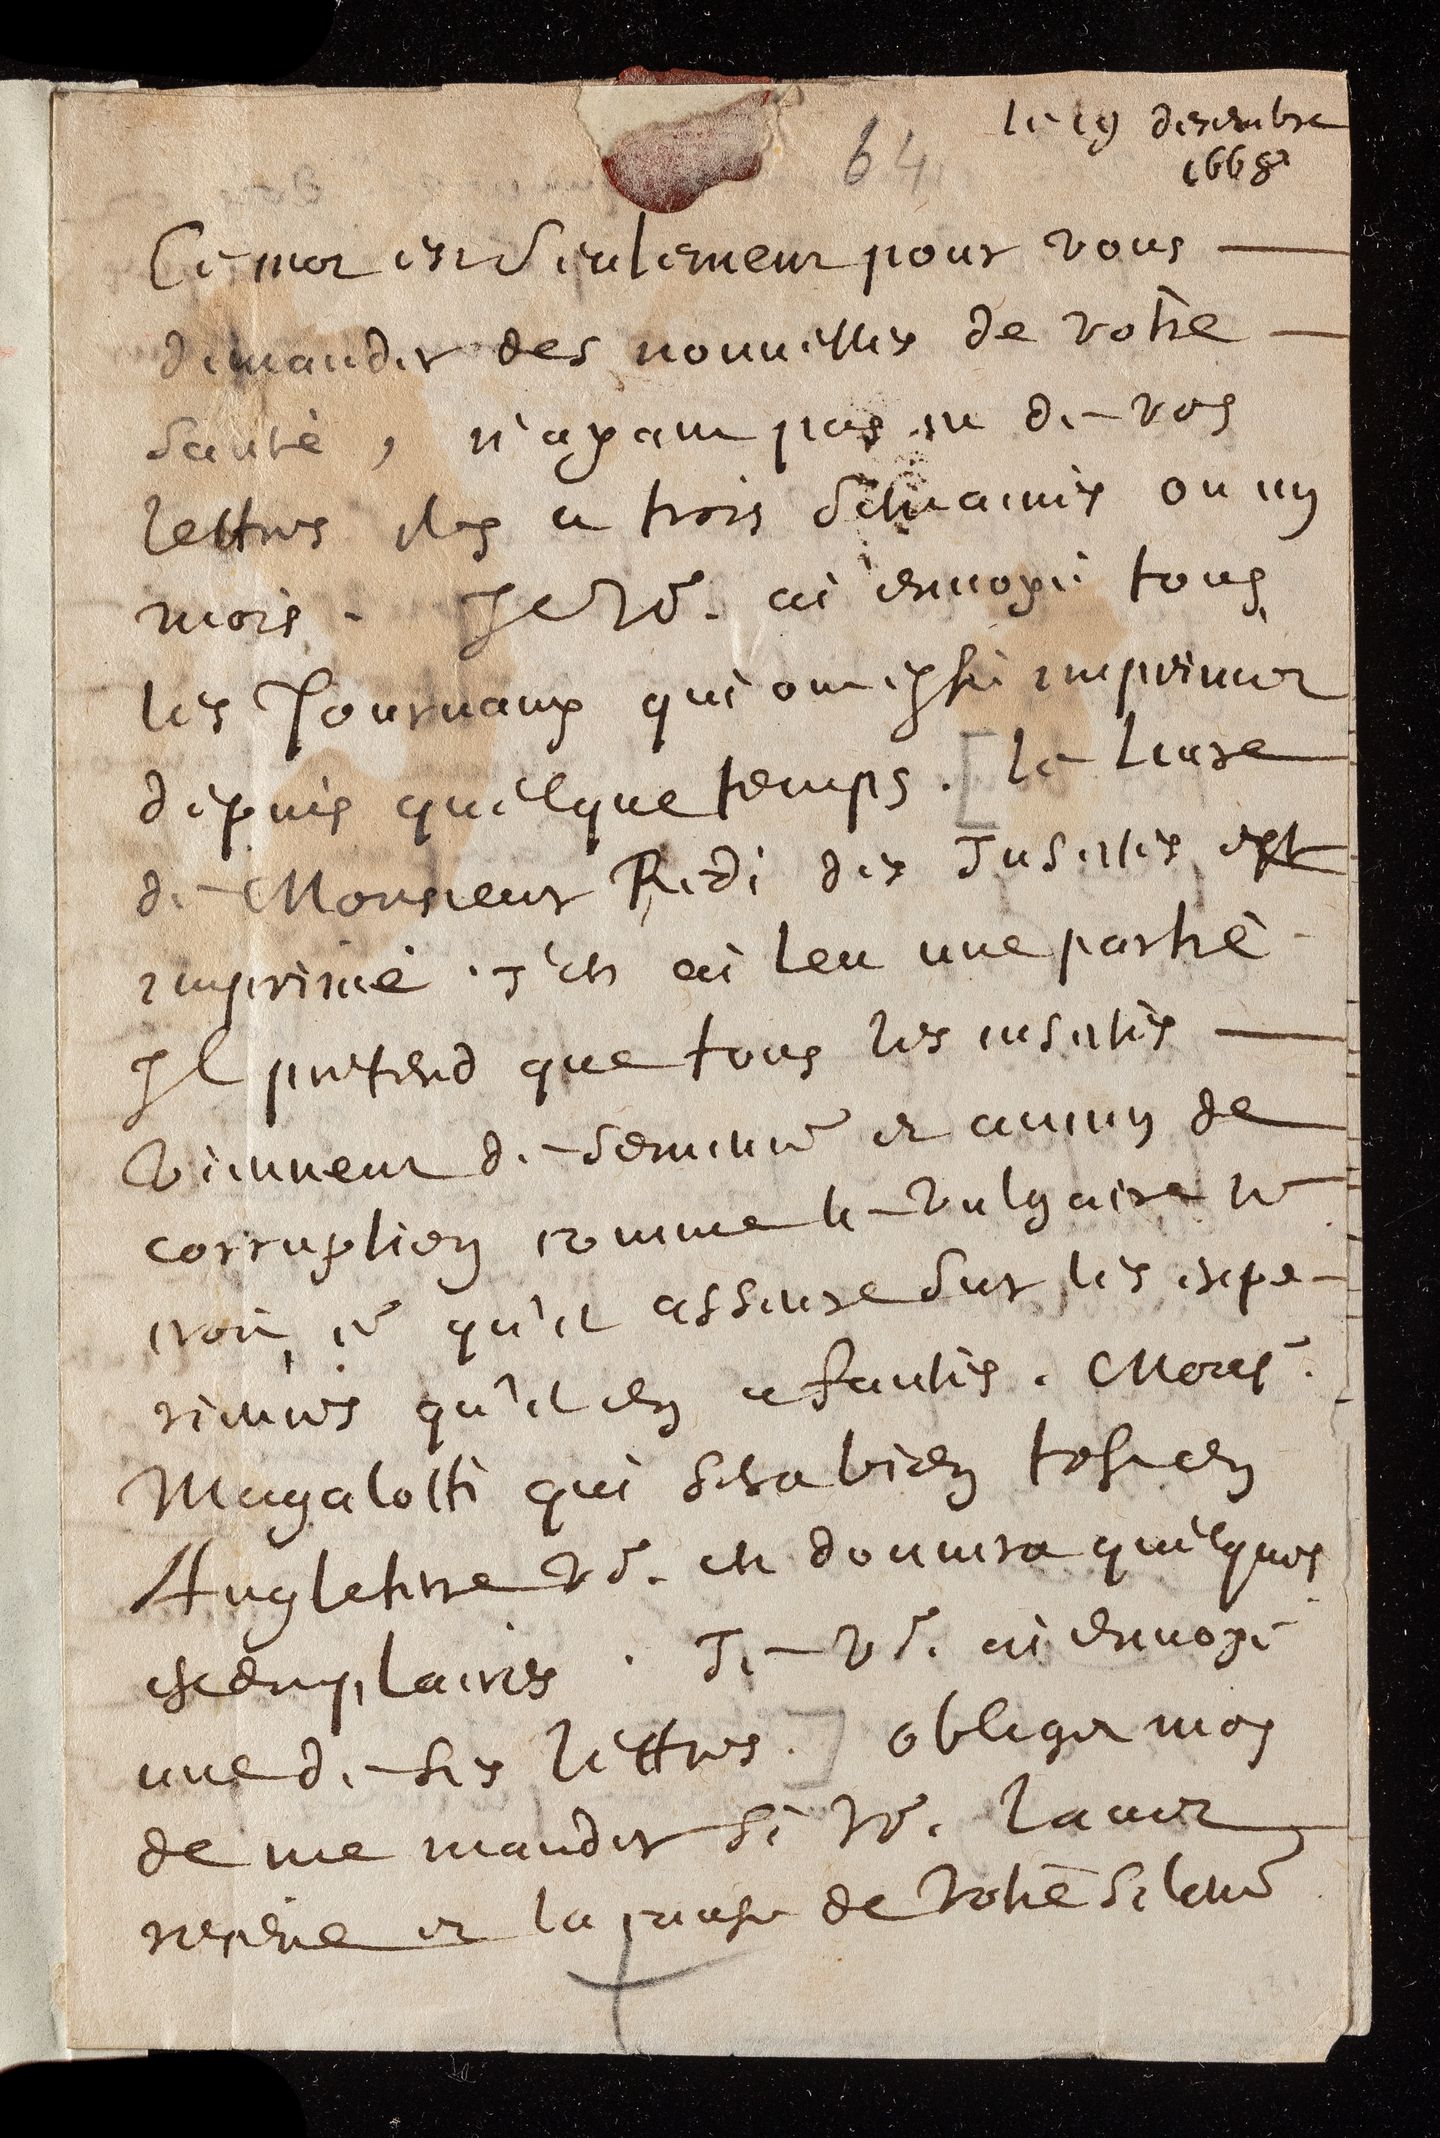 64
le 19 decembre
1668
Ce mot est seulement pour vous
demander des nouuelles de votre
santé, n'ayant pas eu de vos
lettres il y a trois semaines ou un
mois. Je vs. ai enuoyé tous
les Journaux qui ont esté imprimez
depuis quelque temps. [le liure
de Monsieur Redi des Insectes est
imprimé. J'en ai leu une partie
Jl pretend que tous les insectes
viennent de semence et aucun de
corruption comme le vulgaire le
croit, ce qu'il asseure sur les expe-
riences qu'il en a faites. Monsr.
Magalotti qui sera bien tost en
Angleterre vs. en donnera quelques
exemplaires. Je vs. ai enuoyé
une de ses lettres.] obligez moy
de me mander si vs. l'auez
receue et la cause de votre silence